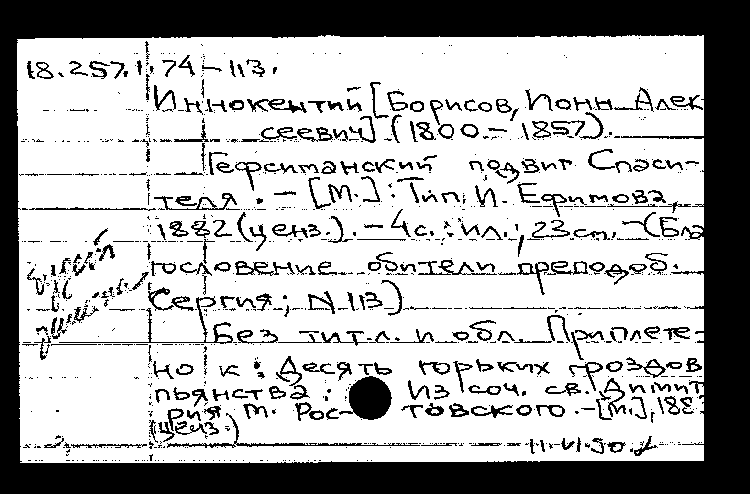 18.257.1.74-113.
Иннокентий [Борисов, Иоан Алек
сеевич] (1800.- 1857).
Гефсиманский подвиг Спаси-
теля. - [М.]: Тип. И. Ефимова,
1882 (ценз.). - 4с.: ил.; 23см. - (Бла
гословение обители преподоб.
Сергия; N 113)
Без тит.л. и обл. Приплете-
но к: Десять горьких гроздов
пьянства: Из соч. св. Димит
рия, м. Рос- товского. - [М.], 188
(ценз.)
11.VI.50.